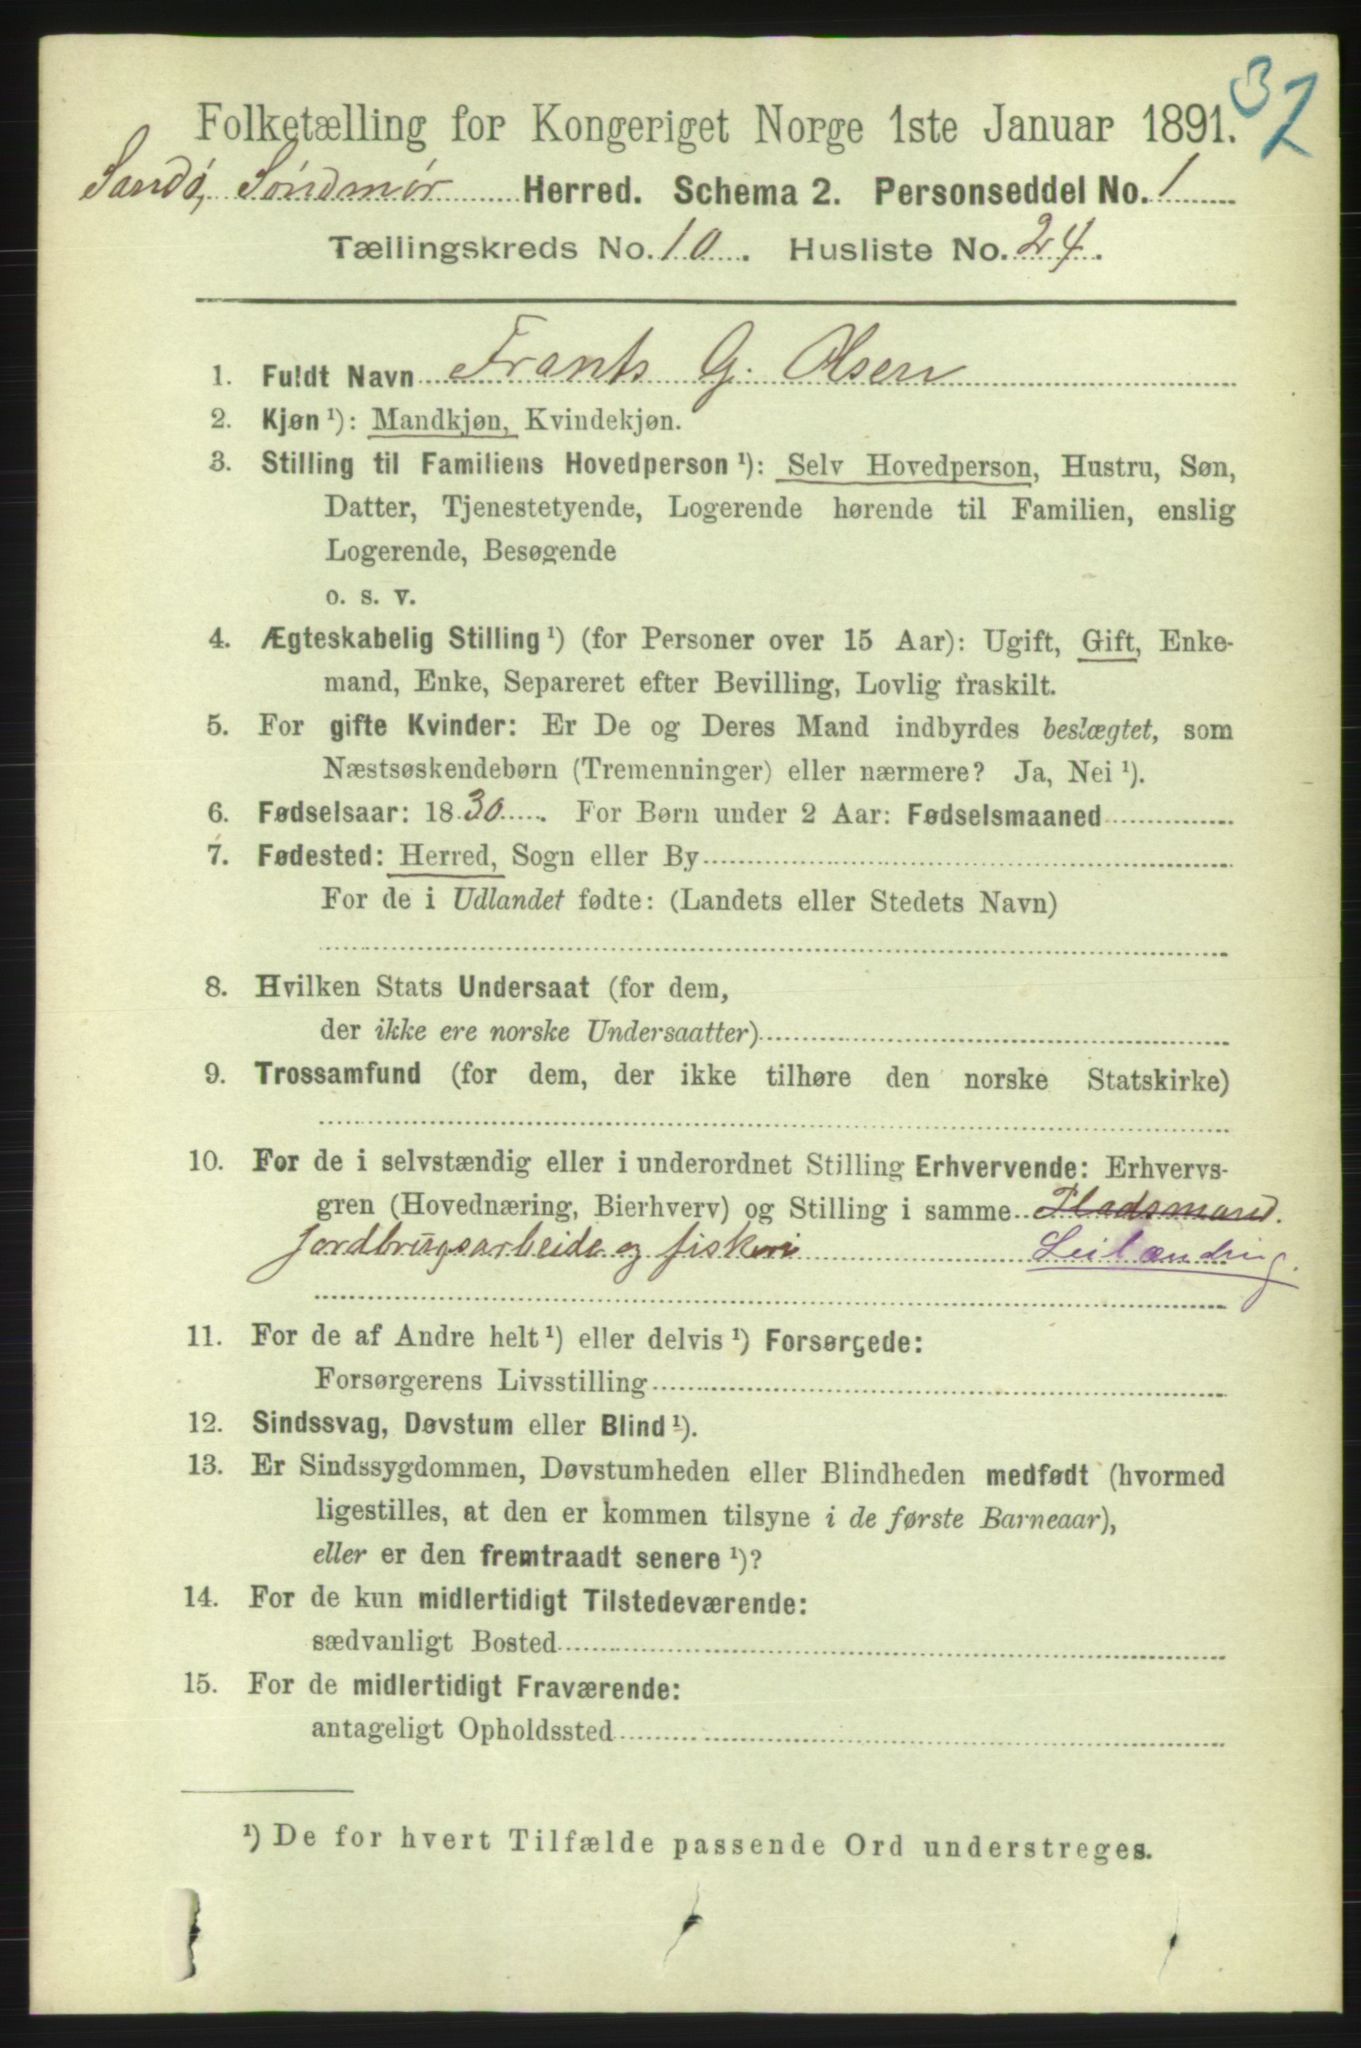 32
Folketælling for Kongeriget Norge 1ste Januar 1891.
Sandø, Søndmør Herred. Schema 2. Personseddel No. 1
Tællingskreds No. 10. Husliste No. 24.
1. Fuldt Navn Frants G. Olsen
2. Kjøn ¹): Mandkjøn, Kvindekjøn.
3. Stilling til Familiens Hovedperson ¹): Selv Hovedperson, Hustru, Søn,
Datter, Tjenestetyende, Logerende hørende til Familien, enslig
Logerende, Besøgende
o. s. v.
4. Ægteskabelig Stilling ¹) (for Personer over 15 Aar): Ugift, Gift, Enke-
mand, Enke, Separeret efter Bevilling, Lovlig fraskilt.
5. For gifte Kvinder: Er De og Deres Mand indbyrdes beslægtet, som
Næstsøskendebørn (Tremenninger) eller nærmere? Ja, Nei ¹).
6. Fødselsaar: 1830. For Børn under 2 Aar: Fødselsmaaned
7. Fødested: Herred, Sogn eller By
For de i Udlandet fødte: (Landets eller Stedets Navn)
8. Hvilken Stats Undersaat (for dem,
der ikke ere norske Undersaatter)
9. Trossamfund (for dem, der ikke tilhøre den norske Statskirke)
10. For de i selvstændig eller i underordnet Stilling Erhvervende: Erhvervs-
gren (Hovednæring, Bierhverv) og Stilling i samme Pladsmand.
Jordbrugsarbeide og fiskeri Leilænding.
11. For de af Andre helt ¹) eller delvis ¹) Forsørgede:
Forsørgerens Livsstilling
12. Sindssvag, Døvstum eller Blind ¹).
13. Er Sindssygdommen, Døvstumheden eller Blindheden medfødt (hvormed
ligestilles, at den er kommen tilsyne i de første Barneaar),
eller er den fremtraadt senere ¹)?
14. For de kun midlertidigt Tilstedeværende:
sædvanligt Bosted
15. For de midlertidigt Fraværende:
antageligt Opholdssted
¹) De for hvert Tilfælde passende Ord understreges.